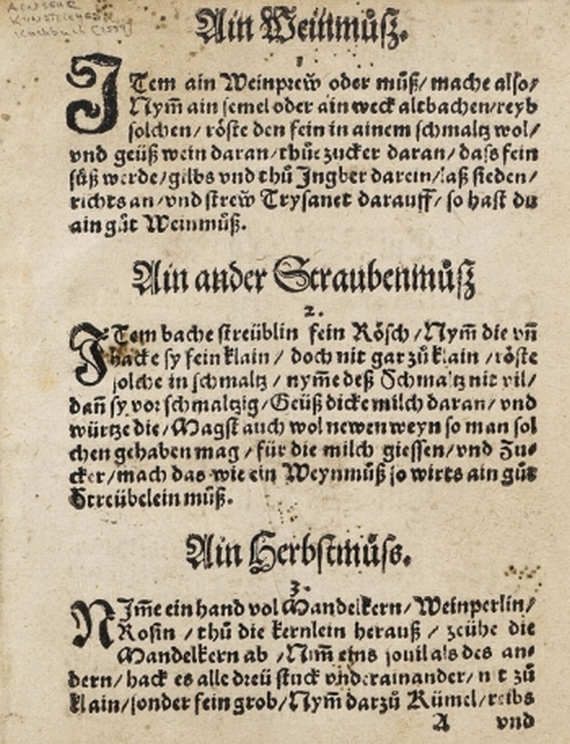 Ain Weinmůß.
1
ITem ain Weinprew̃ oder můß/ mache also/
Nym̃ ain semel oder ain weck altbachen/reyb
solchen/ röste den fein in ainem schmaltz wol/
vnd geüß wein daran/thůe zucker daran/ dass fein
süß werde/gilbs vnd thů Ingber darein/laß sieden/
richts an/vnd strew̃ Trysanet darauff/ so hast du
ain gůt Weinmůß.
Ain ander Straubenmůß
2.
ITem bache streüblin fein Rösch/Nym̃ die vñ
hacke sy fein klain/ doch nit gar zů klain/röste
solche in schmaltz/ nym̃e deß Schmaltz nit vil/
dañ sy vor schmaltzig/Geüß dicke milch daran/ vnd
würtze die/Magst auch wol newen weyn so man sol
chen gehaben mag/ für die milch giessen/vnd Zu⸗
cker/mach das wie ein Weynmůß so wirts ain gůt
Streübelein můß.
Ain Herbstmůss.
3.
NIm̃e ein hand vol Mandelkern/Weinperlin/
Rosin/ thů die kernlein herauß/ zeühe die
Mandelkern ab/Nim̃ eins souil als des an⸗
dern/ hack es alle dreü stuck vnderainander/ nit zů
klain/sonder fein grob/Nym̃ darzů Kümel/reibs
A vnd